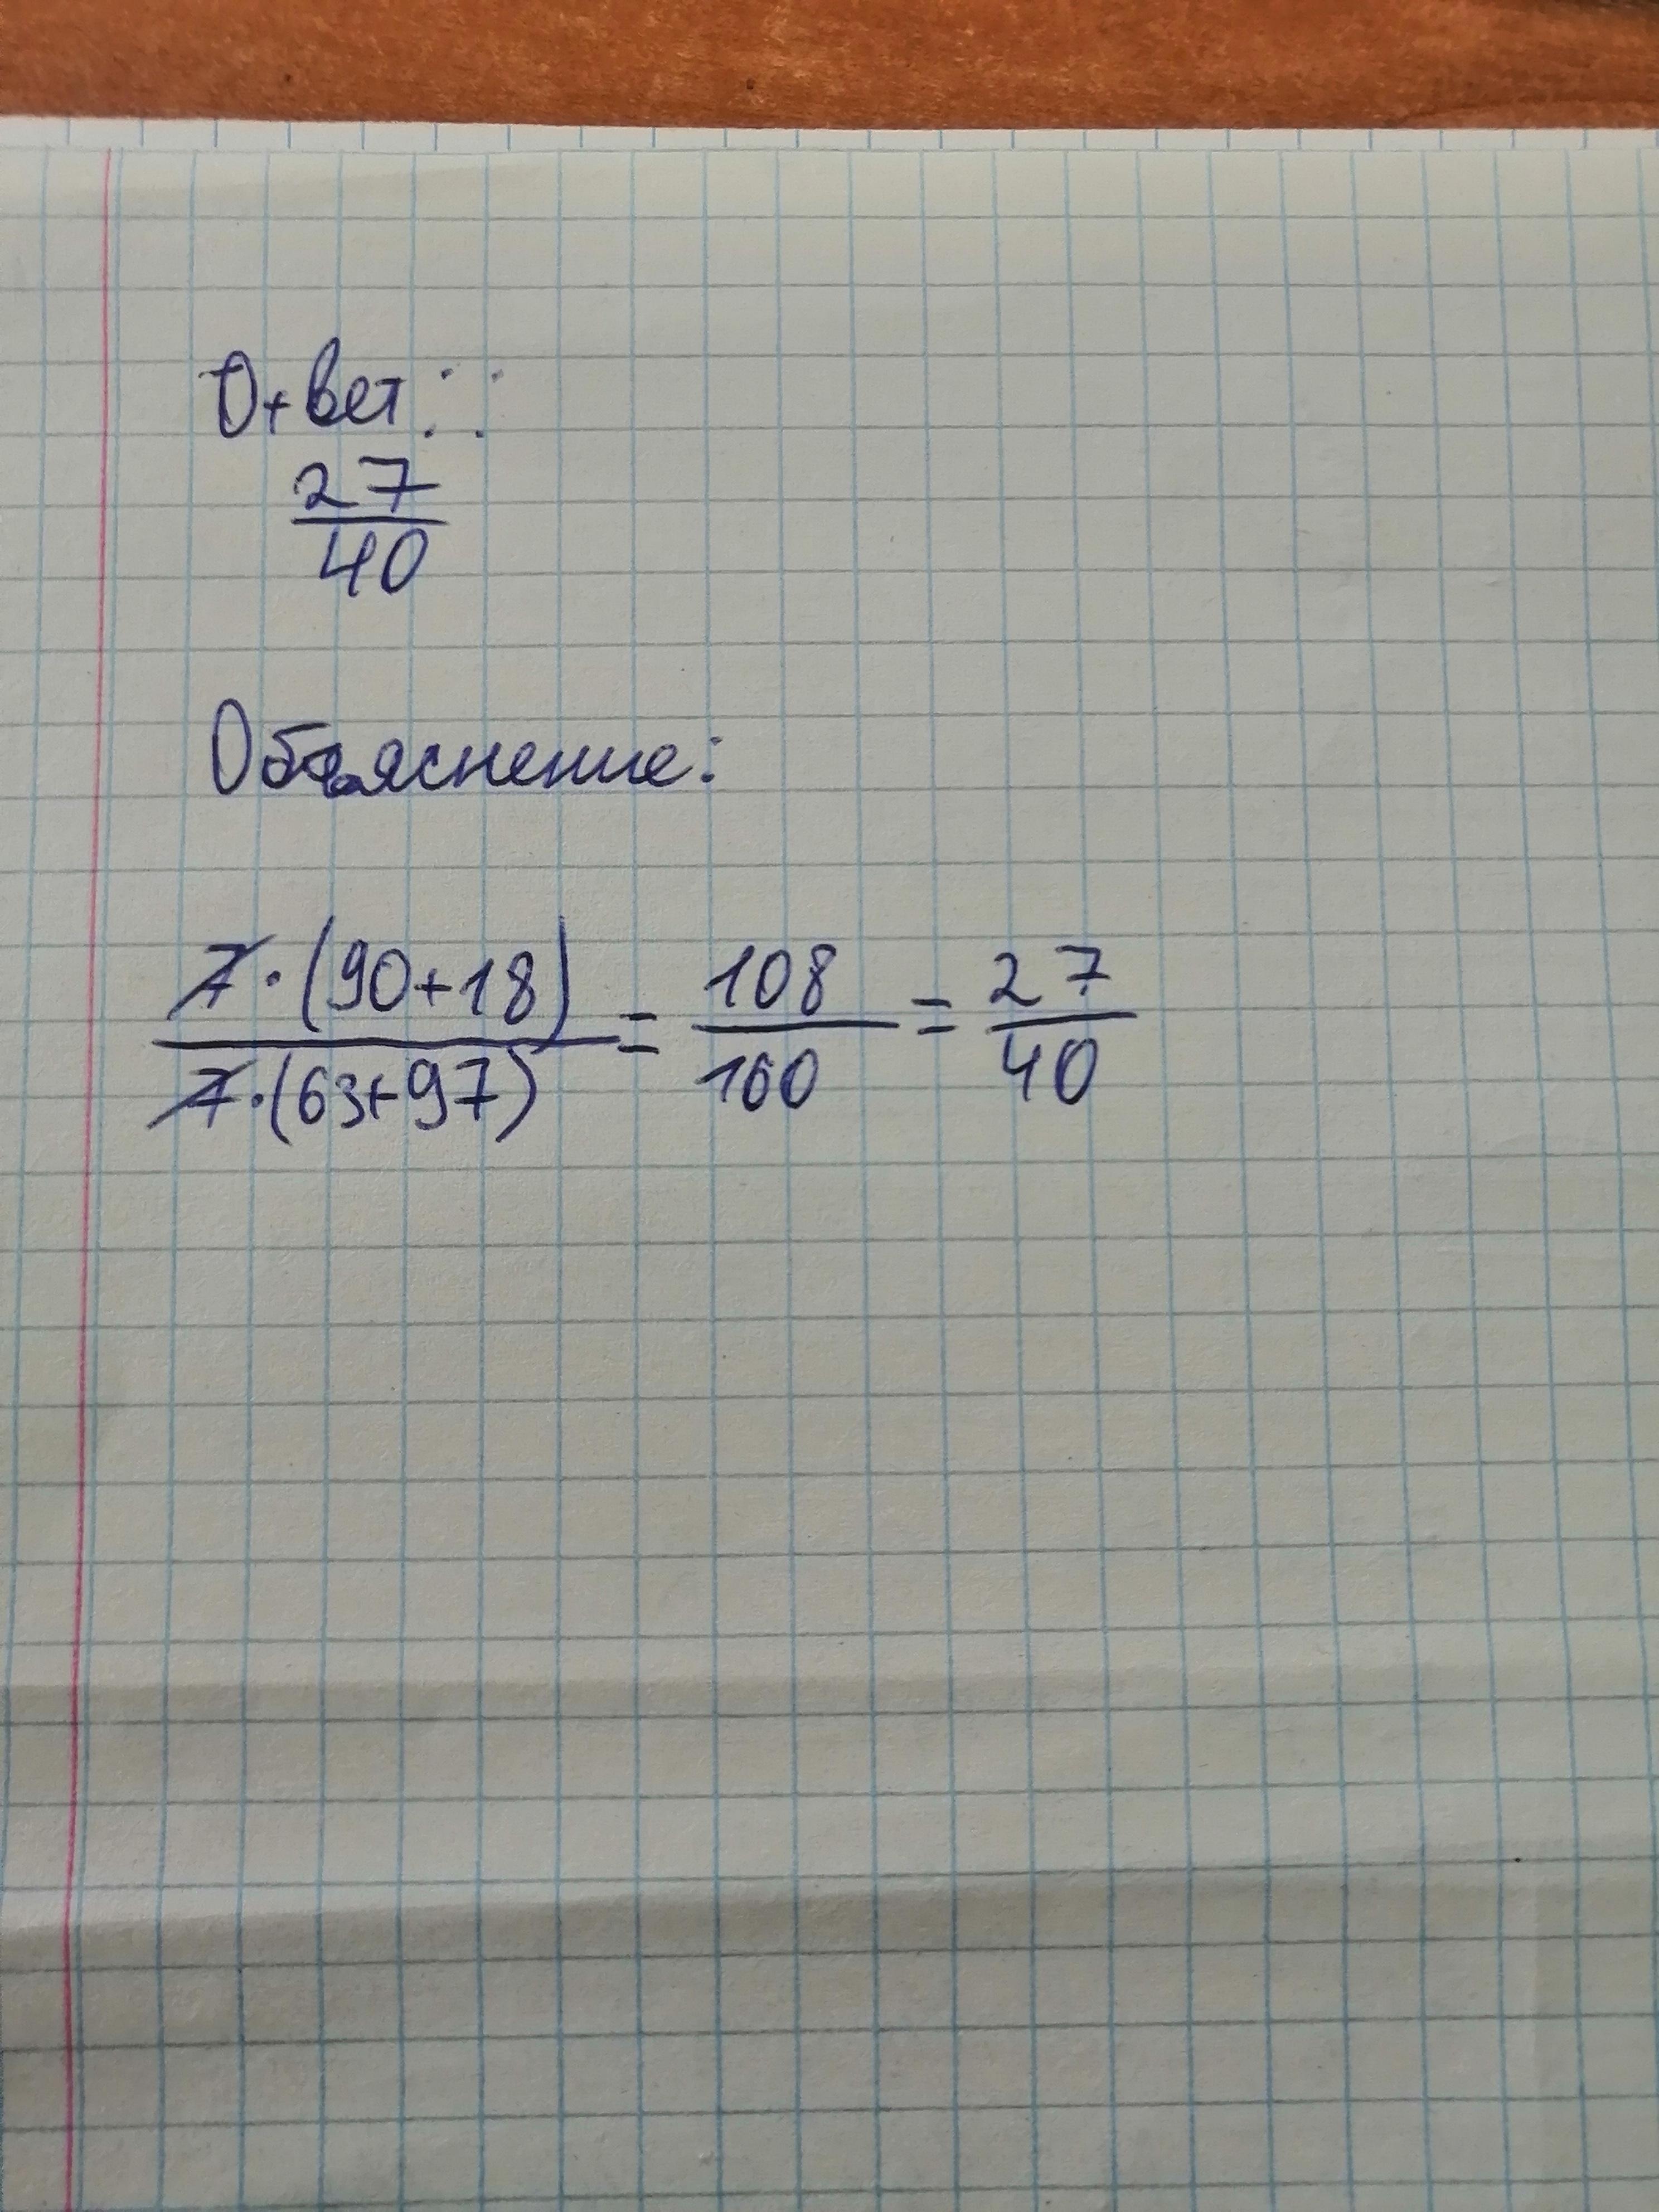 Ответ::
27/40
Объяснение:
7·(90+18)/7·(63+97) = 108/160 = 27/40